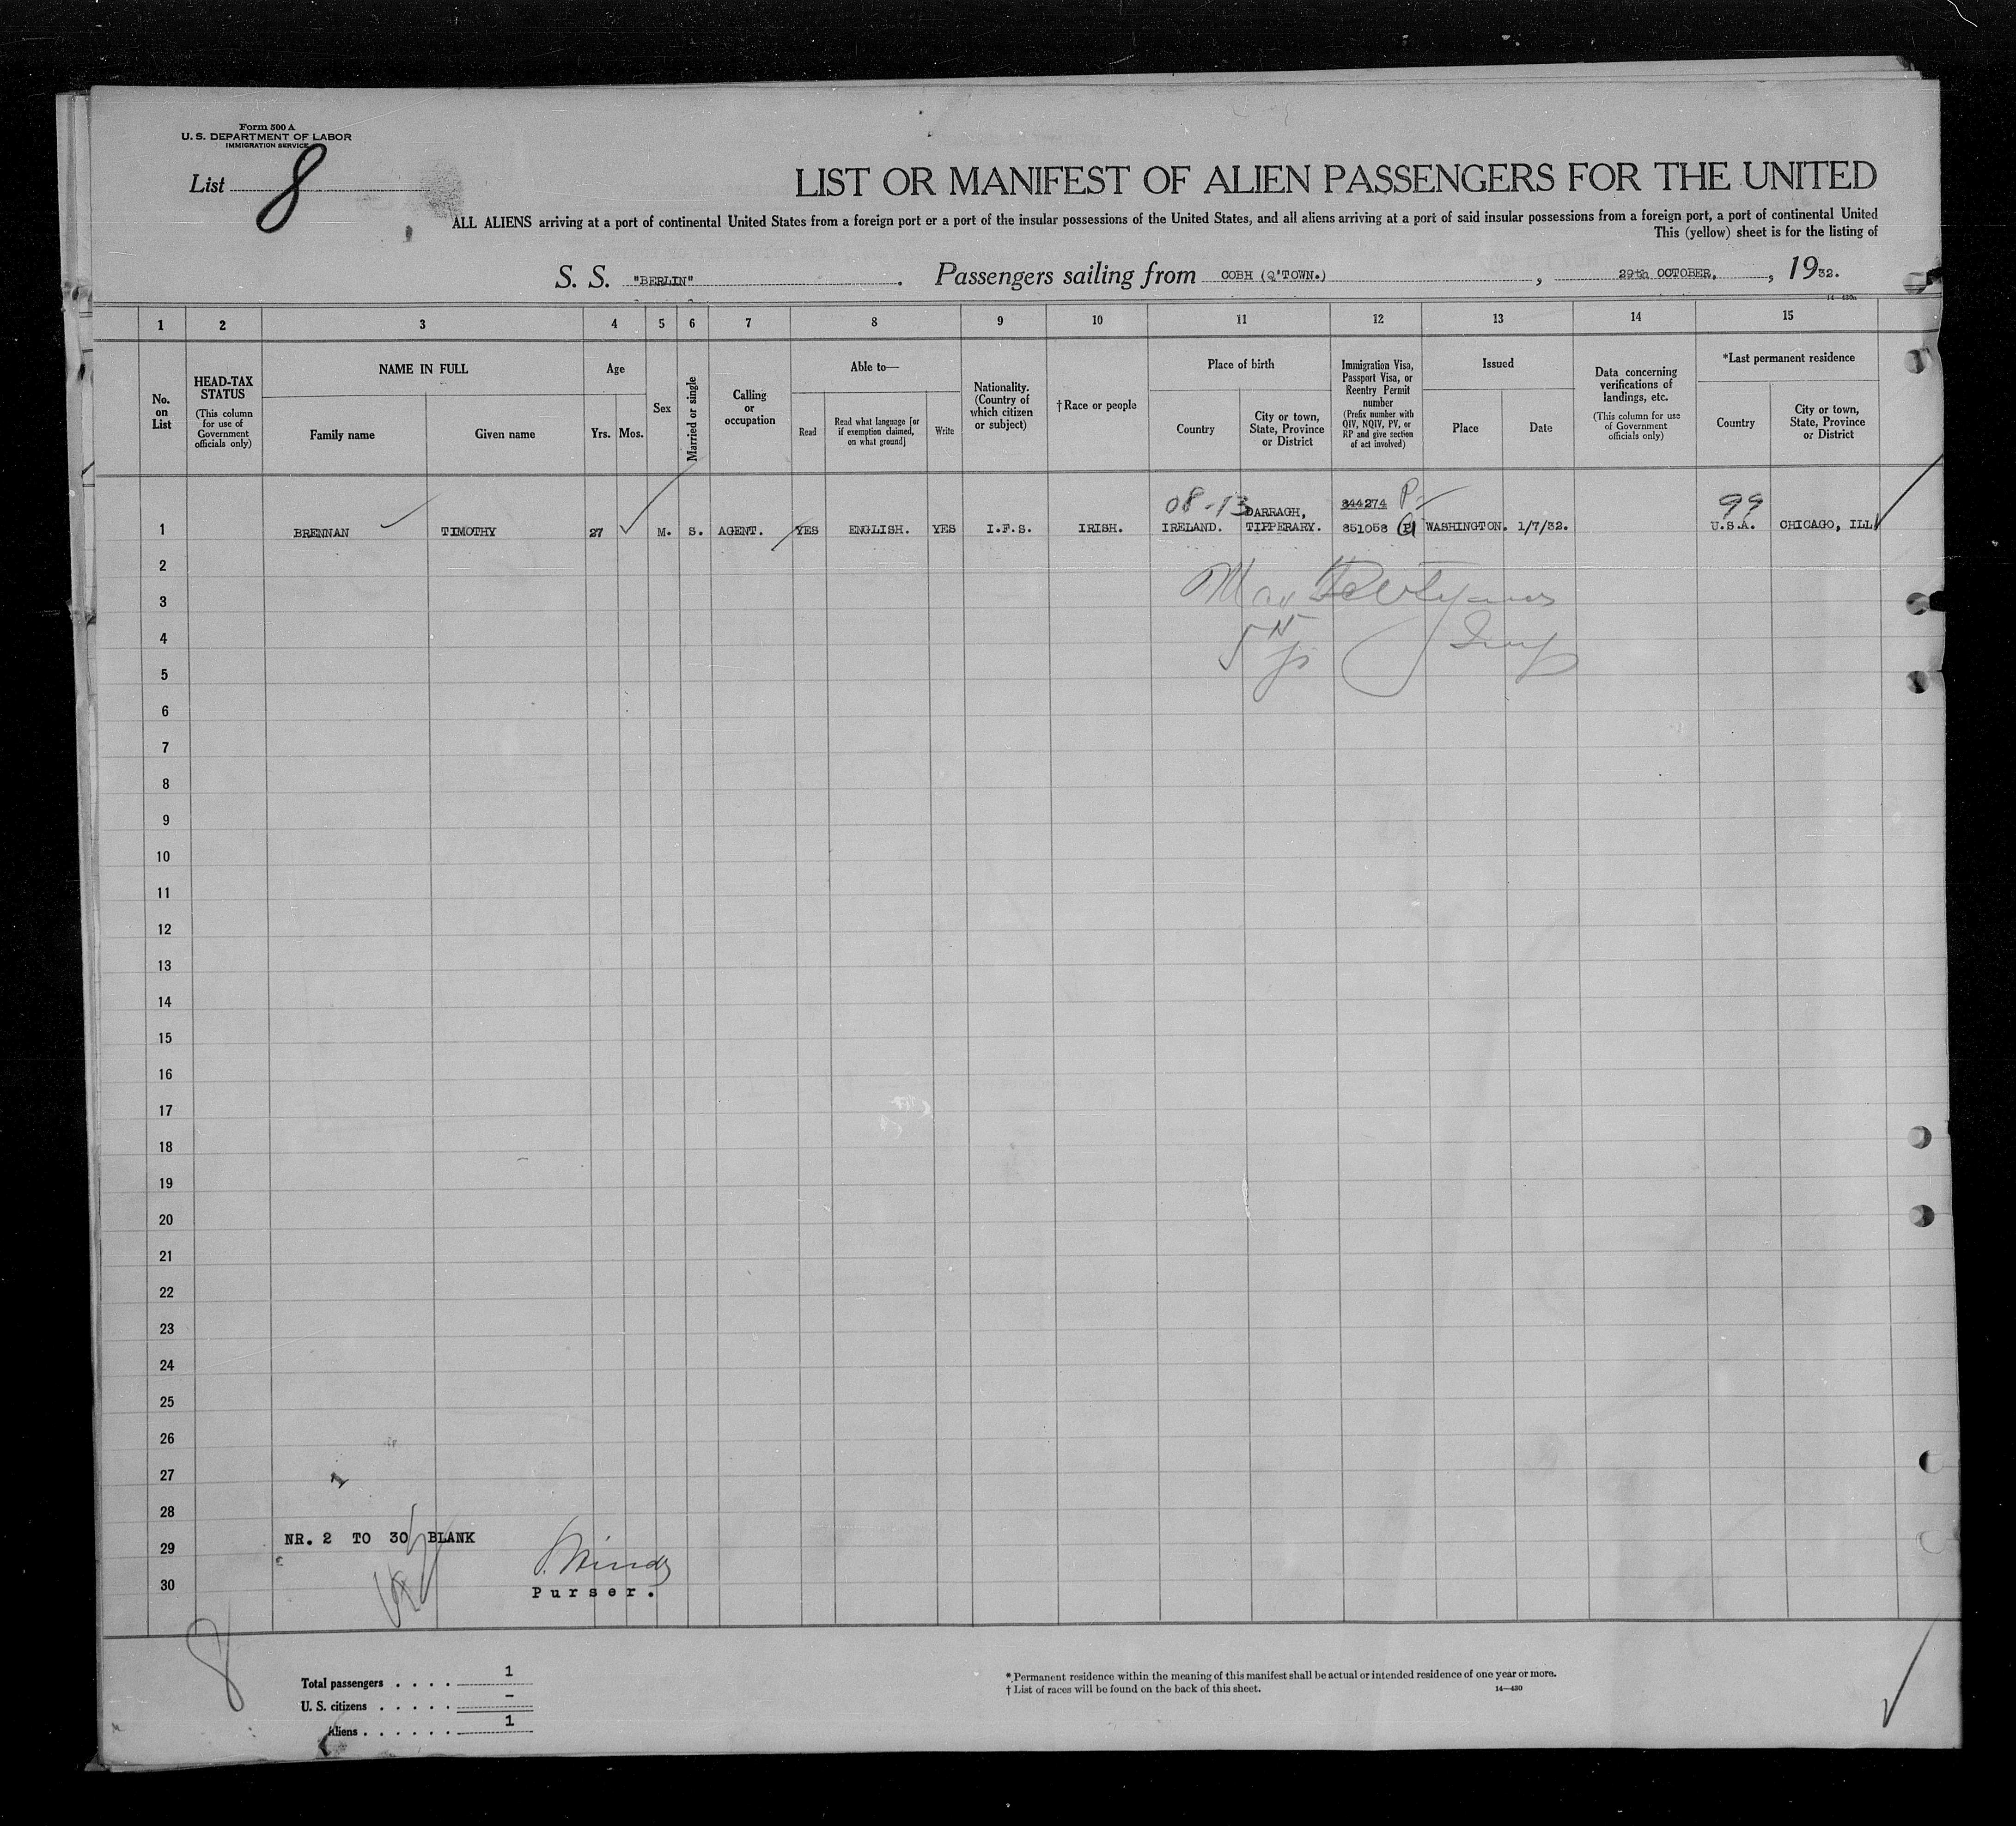 Form 500 A
U. S. DEPARTMENT OF LABOR
IMMIGRATION SERVICE
List 8
LIST OR MANIFEST OF ALIEN PASSENGERS FOR THE UNITED
ALL ALIENS arriving at a port of continental United States from a foreign port or a port of the insular possessions of the United States, and all aliens arriving at a port of said insular possessions from a foreign port, a port of continental United
This (yellow) sheet is for the listing of
S. S. "BERLIN". Passengers sailing from COBH (Q'TOWN.), 29th OCTOBER., 1932.
14—430a
1 2 3 4 5 6 7 8 9 10 11 12 13 14 15
No. on List
HEAD-TAX STATUS (This column for use of Government officials only)
NAME IN FULL
Family name
Given name
Age
Yrs.
Mos.
Sex
Married or single
Calling or occupation
Able to—
Read
Read what language [or if exemption claimed, on what ground]
Write
Nationality. (Country of which citizen or subject)
†Race or people
Place of birth
Country
City or town, State, Province or District
Immigration Visa, Passport Visa, or Reentry Permit number (Prefix number with QIV, NQIV, PV, or RP and give section of act involved)
Issued
Place
Date
Data concerning verifications of landings, etc. (This column for use of Government officials only)
*Last permanent residence
Country
City or town, State, Province or District
08-13 DARRAGH, 844274 P- 99
1 BRENNAN TIMOTHY 27 M. S. AGENT. YES ENGLISH. YES I.F.S. IRISH. IRELAND. TIPPERARY. 851058 WASHINGTON. 1/7/32. U.S.A. CHICAGO, ILL
2
3
4
5
6
7
8
9
10
11
12
13
14
15
16
17
18
19
20
21
22
23
24
25
26
27
28
NR. 2 TO 30 BLANK
29
30
Purser.
8
Total passengers . . . . 1
U. S. citizens . . . . . –
Aliens . . . . . . 1
* Permanent residence within the meaning of this manifest shall be actual or intended residence of one year or more.
† List of races will be found on the back of this sheet.
14—430